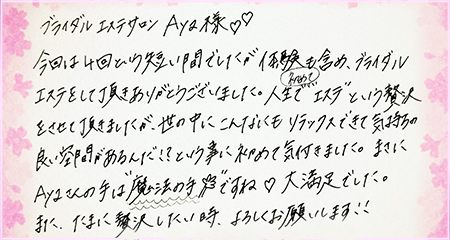 ブライダルエステサロン Aya様♡♡
今回は4回という短い間でしたが 体験も含め、ブライダル
エステをして頂きありがとうございました。人生で初めて"エステ"という贅沢
をさせて頂きましたが、世の中に こんなにも リラックスできて気持ちの
良い空間があるんだ!?という事に初めて気付きました。まさに
Ayaさんの手は"魔法の手"ですね♡ 大満足でした。
また、たまに贅沢したい時、よろしくお願いします!!